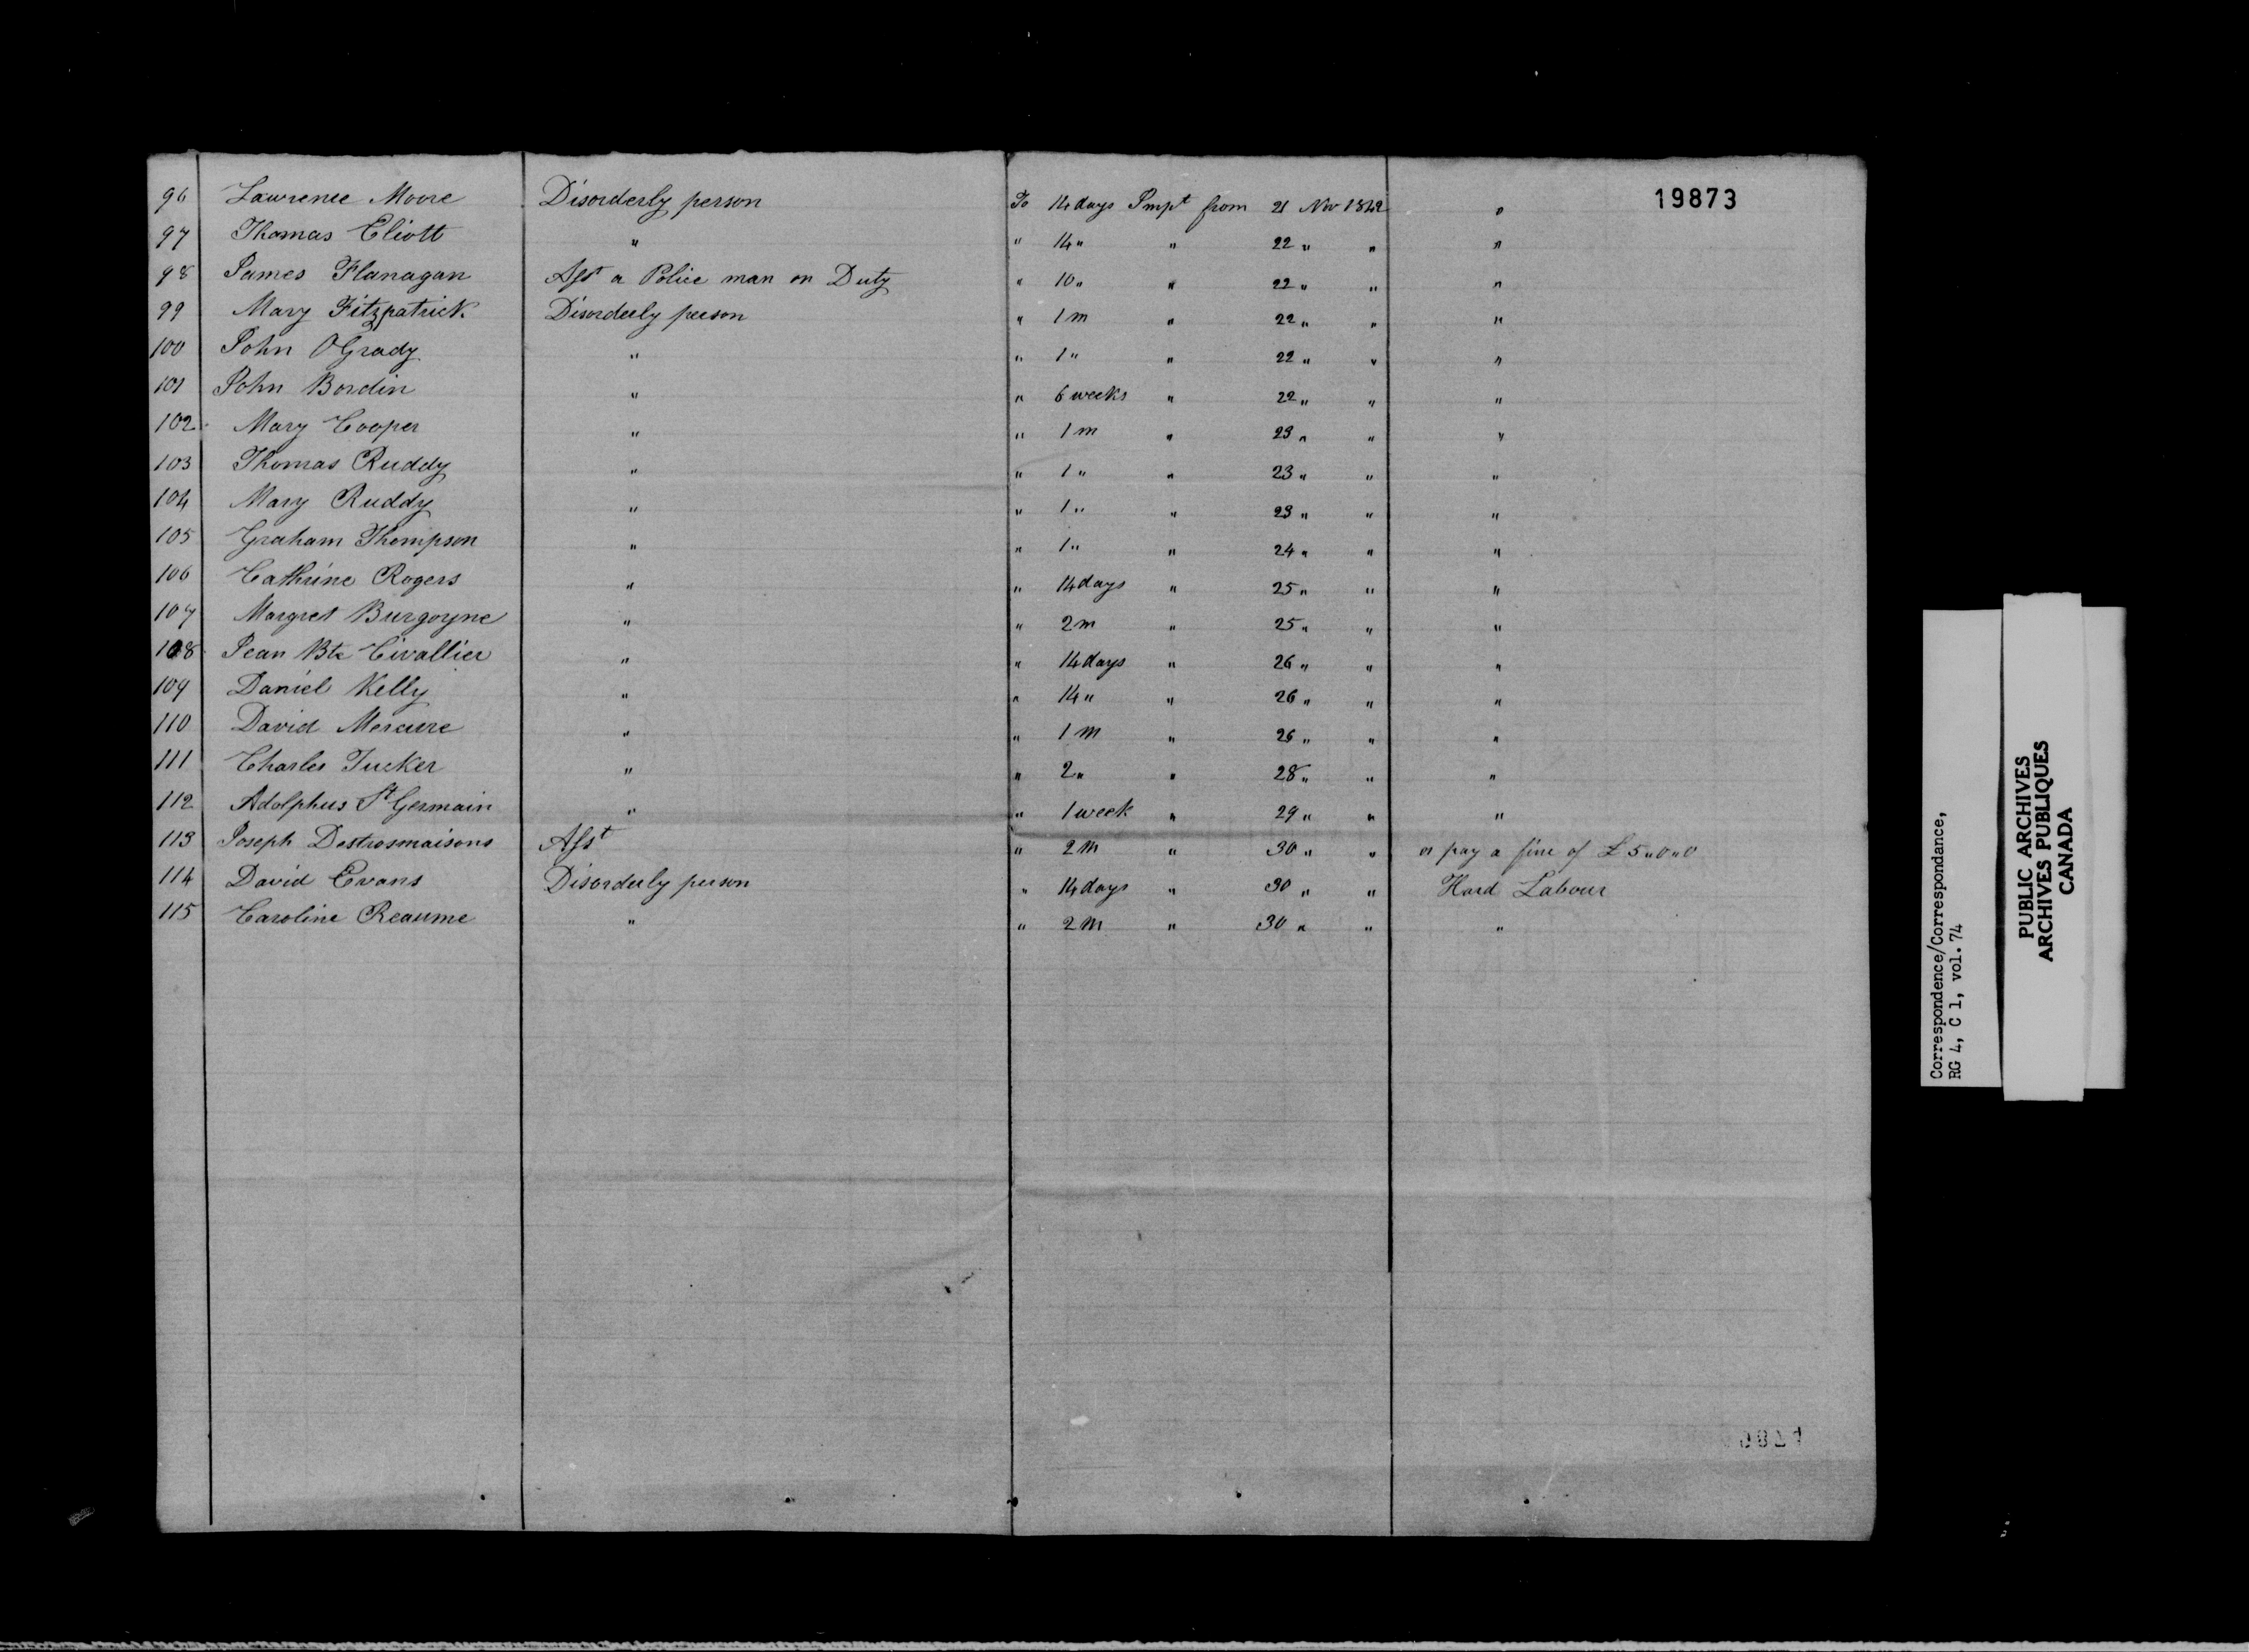 19873
96 Lawrence Moore Disorderly person To 14 days Impt from 21 Nov 1842 "
97 Thomas Eliott " " 14 " " 22 " " "
98 James Flanagan Asst a Police man on Duty " 10 " " 22 " " "
99 Mary Fitzpatrick Disorderly person " 1 m " 22 " " "
100 John OGrady " " 1 " " 22 " " "
101 John Bordin " " 6 weeks " 22 " " "
102 Mary Cooper " " 1 m " 23 " " "
103 Thomas Ruddy " " 1 " " 23 " " "
104 Mary Ruddy " " 1 " " 23 " " "
105 Graham Thompson " " 1 " " 24 " " "
106 Cathrine Rogers " " 14 days " 25 " " "
107 Margret Burgoyne " " 2 m " 25 " " "
108 Jean Bte Civallier " " 14 days " 26 " " "
109 Daniel Kelly " " 14 " " 26 " " "
110 David Mercure " " 1 m " 26 " " "
111 Charles Tucker " " 2 " " 28 " " "
112 Adolphus St Germain " " 1 week " 29 " " "
113 Joseph Destrosmaisons Asst " 2 m " 30 " " or pay a fine of £ 5 " 0 " 0
114 David Evans Disorderly person " 14 days " 30 " " Hard Labour
115 Caroline Reaume " " 2 m " 30 " " "
Correspondence/Correspondance,
RG 4, C 1, vol. 74
PUBLIC ARCHIVES
ARCHIVES PUBLIQUES
CANADA